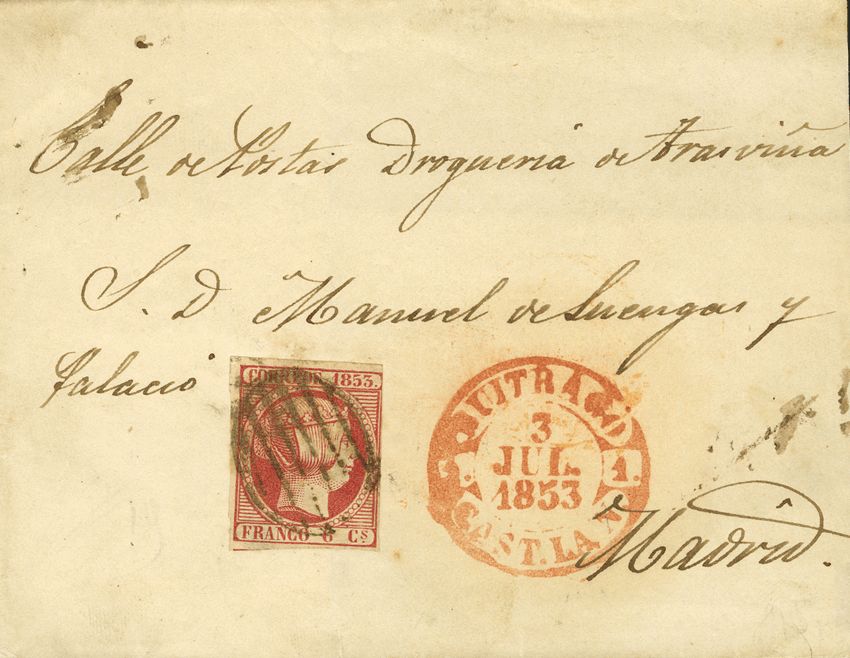 Calle de Postas Droguería de Arasviña
S. D Manuel de Luengas y
Palacio
CORREOS 1853.
FRANCO 6 Cs
BUITRAGO
3
JUL.
1853
1.
CAST. LA N.
Madrid.